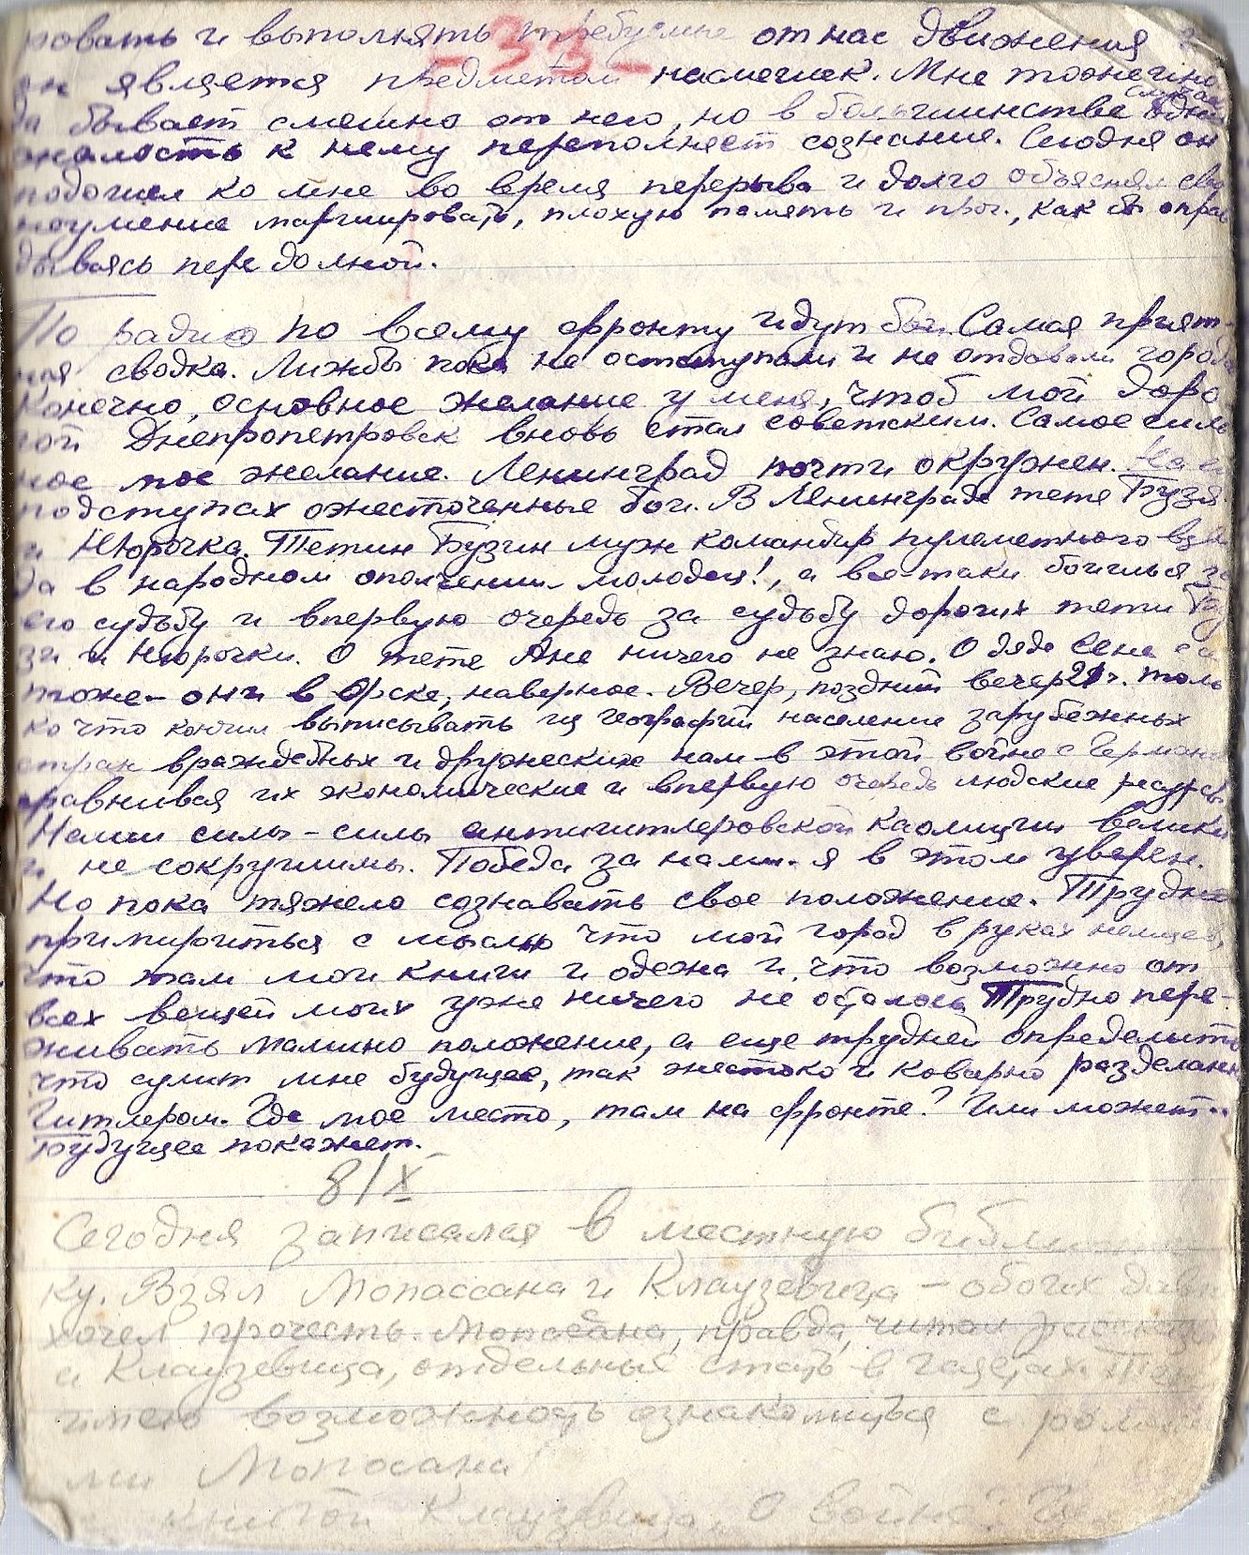 -33-
ровать и выполнять требуемые от нас движения и
он является предметом насмешек. Мне тоже ино
да бывает смешно от него, но в большинстве случае одна
жалость к нему переполняет сознание. Сегодня он
подошел ко мне во время перерыва и долго объяснял сво
неумение маршировать, плохую память и проч., как бы оправ
дываясь передо мной.
По радио по всему фронту идут бои. Самая прият-
ная сводка. Лиж бы пока не остступали и не отдавали города
Конечно, основное желание у меня, чтоб мой доро
гой Днепропетровск вновь стал советским. Самое силь
ное мое желание. Ленинград почти окружен. На
подступах ожесточенные бои. В Ленинграде тетя Бузя
и Нюрочка. Тетин Бузин муж командир пулеметного взво
да в народном ополчении - молодец!, а все-таки боишься за
его судьбу и впервую очередь за судьбу дорогих тети Бу
зи и Нюрочки. О тете Ане ничего не знаю. О дяде Сене
тоже - они в Орске, наверное. Вечер, поздний вечер 21 ч. толь
ко что кончил выписывать из географии население зарубежных
стран враждебных и дружеских нам в этой войне с Герман
сравнивая их экономические и впервую очередь людские ресурсы
Наши силы - силы антигитлеровской каолиции велики
и не сокрушимы. Победа за нами - я в этом уверен.
Но пока тяжело сознавать свое положение. Трудно
примириться с мыслью что мой город в руках немцев,
что там мои книги и одежа и, что возможно от
всех вещей моих уже ничего не осталось. Трудно пере-
живать мамино положение, а еще трудней определить
что сулит мне будущее, так жестоко и коварно разделанн
Гитлером. Где мое место, там на фронте? Или может..
Будущее покажет.
8/X
Сегодня записался в местную библиоте
ку. Взял Мопассана и Клаузевица - обоих давн
хочел прочесть. Мопасана, правда, читал рассказы
а Клаузевица, отдельные стать в газетах. Теп
имею возможность ознакомиться с рома
ми Мопосана
книгой Клаузевица "О войне".